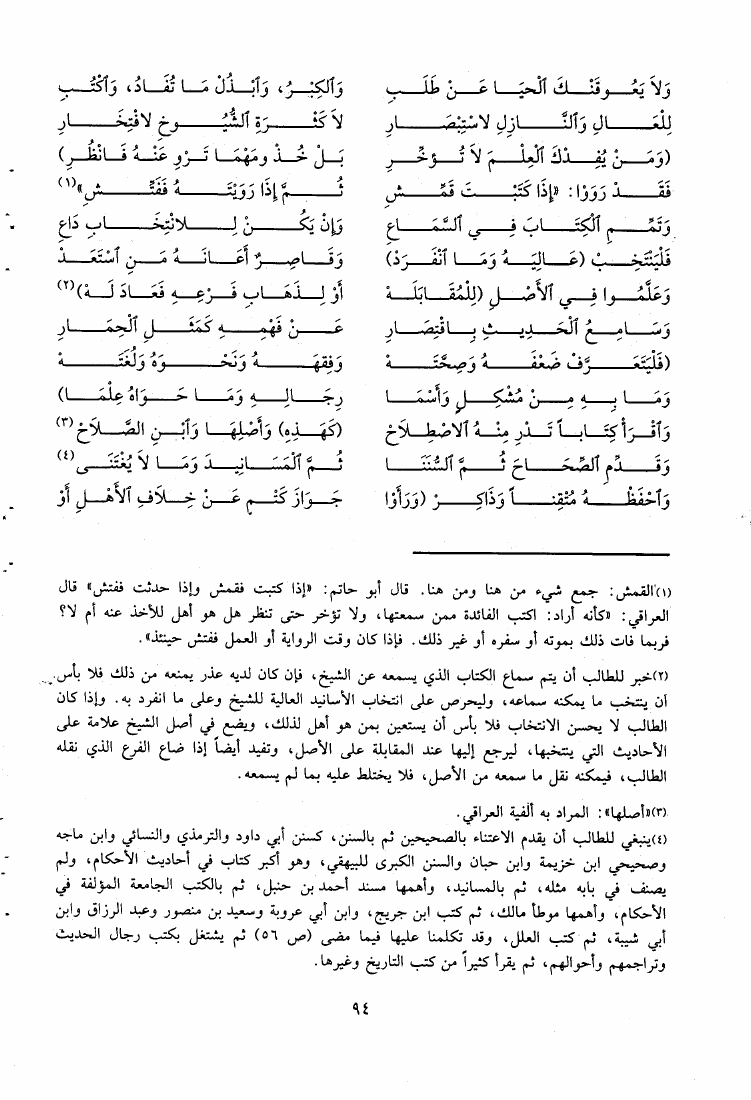 وَلاَ يَعُوقَنْكَ ٱلْحَيَا عَنْ طَلَبِ وَٱلْكِبْرُ، وَٱبْذُلْ مَا تُفَادُ، وَٱكْتُبِ
لِلْعَالِ وَٱلنَّازِلِ لاسْتِبْصَارِ لاَ كَثْرَةِ ٱلشُّيُوخِ لافْتِخَارِ
(وَمَنْ يُفِدْكَ ٱلْعِلْمَ لاَ تُؤَخِّرِ بَلْ خُذْ وَمَهْمَا تَرْوِ عَنْهُ فَانْظُرِ)
فَقَدْ رَوَوْا: «إِذَا كَتَبْتَ قَمِّشِ ثُمَّ إِذَا رَوَيْتَهُ فَفَتِّشِ»(١)
وَتَمِّمِ ٱلْكِتَابَ فِي ٱلسَّمَاعِ وَإِنْ يَكُنْ لِلانْتِخَابِ دَاعِ
فَلْيَنْتَخِبْ (عَالِيَهُ وَمَا ٱنْفَرَدْ) وَقَاصِرٌ أَعَانَهُ مَنِ ٱسْتَعَدْ
وَعَلَّمُوا فِي ٱلأَصْلِ (لِلْمُقَابَلَهْ أَوْ لِذَهَابِ فَرْعِهِ فَعَادَ لَهْ)(٢)
وَسَامِعُ ٱلْحَدِيثِ بِاقْتِصَارِ عَنْ فَهْمِهِ كَمَثَلِ ٱلْحِمَارِ
(فَلْيَتَعَرَّفْ ضَعْفَهُ وَصِحَّتَهْ وَفِقْهَهُ وَنَحْوَهُ وَلُغَتَهْ
وَمَا بِهِ مِنْ مُشْكِلٍ وَأَسْمَا رِجَالِهِ وَمَا حَوَاهُ عِلْمَا)
وَٱقْرَأْ كِتَاباً تَدْرِ مِنْهُ ٱلاصْطِلاَحْ (كَهَذِهِ) وَأَصْلِهَا وَٱبْنِ ٱلصَّلاَحْ(٣)
وَقَدِّمِ ٱلصِّحَاحَ ثُمَّ ٱلسُّنَنَا ثُمَّ ٱلْمَسَانِيدَ وَمَا لاَ يُغْتَنَى(٤)
وَٱحْفَظْهُ مُتْقِناً وَذَاكِرْ (وَرَأَوْا جَوَازَ كَتْمٍ عَنْ خِلاَفِ ٱلأَهْلِ أَوْ
(١) القمش: جمع شيء من هنا ومن هنا. قال أبو حاتم: «إذا كتبت فقمش وإذا حدثت ففتش» قال
العراقي: «كأنه أراد: اكتب الفائدة ممن سمعتها، ولا تؤخر حتى تنظر هل هو أهل للأخذ عنه أم لا؟
فربما فات ذلك بموته أو سفره أو غير ذلك. فإذا كان وقت الرواية أو العمل ففتش حينئذ».
(٢) خير للطالب أن يتم سماع الكتاب الذي يسمعه عن الشيخ، فإن كان لديه عذر يمنعه من ذلك فلا بأس
أن ينتخب ما يمكنه سماعه، وليحرص على انتخاب الأسانيد العالية للشيخ وعلى ما انفرد به. وإذا كان
الطالب لا يحسن الانتخاب فلا بأس أن يستعين بمن هو أهل لذلك، ويضع في أصل الشيخ علامة على
الأحاديث التي ينتخبها، ليرجع إليها عند المقابلة على الأصل، وتفيد أيضاً إذا ضاع الفرع الذي نقله
الطالب، فيمكنه نقل ما سمعه من الأصل، فلا يختلط عليه بما لم يسمعه.
(٣) «أصلها»: المراد به ألفية العراقي.
(٤) ينبغي للطالب أن يقدم الاعتناء بالصحيحين ثم بالسنن، كسنن أبي داود والترمذي والنسائي وابن ماجه
وصحيحي ابن خزيمة وابن حبان والسنن الكبرى للبيهقي، وهو أكبر كتاب في أحاديث الأحكام، ولم
يصنف في بابه مثله، ثم بالمسانيد، وأهمها مسند أحمد بن حنبل، ثم بالكتب الجامعة المؤلفة في
الأحكام، وأهمها موطأ مالك، ثم كتب ابن جريج، وابن أبي عروبة وسعيد بن منصور وعبد الرزاق وابن
أبي شيبة، ثم كتب العلل، وقد تكلمنا عليها فيما مضى (ص ٥٦) ثم يشتغل بكتب رجال الحديث
وتراجمهم وأحوالهم، ثم يقرأ كثيراً من كتب التاريخ وغيرها.
٩٤